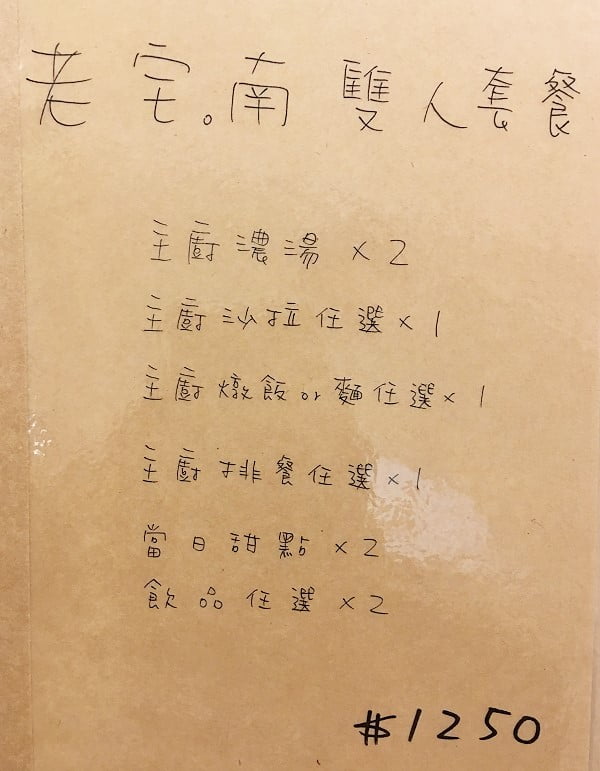 老宅。南 雙人套餐
主廚濃湯 x 2
主廚沙拉任選 x 1
主廚燉飯or麵任選 x 1
主廚排餐任選 x 1
當日甜點 x 2
飲品任選 x 2
#1250